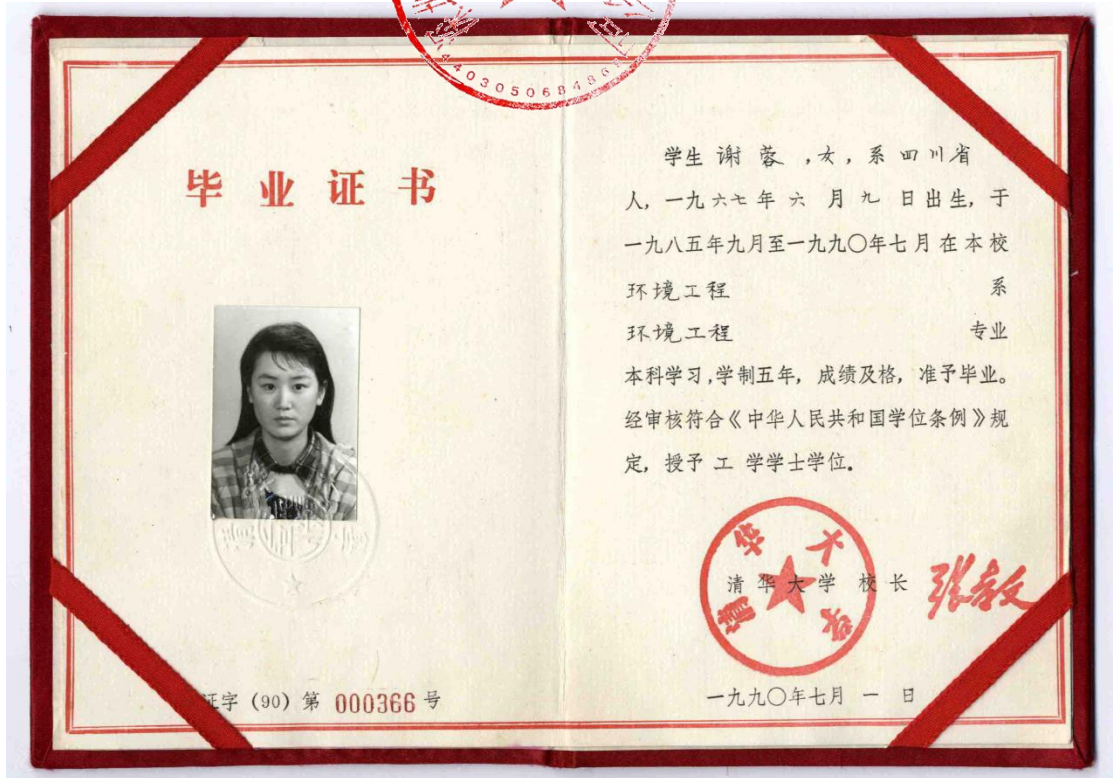 4403050684867
毕业证书
证字 (90) 第 000366 号
学生 谢蓉 ,女, 系四川省
人, 一九六七年 六 月 九 日出生, 于
一九八五年九月至一九九〇年七月在本校
环境工程 系
环境工程 专业
本科学习,学制五年, 成绩及格, 准予毕业。
经审核符合《中华人民共和国学位条例》规
定, 授予 工 学学士学位。
清华大学
清华大学 校长 张孝文
一九九〇年七月 一 日